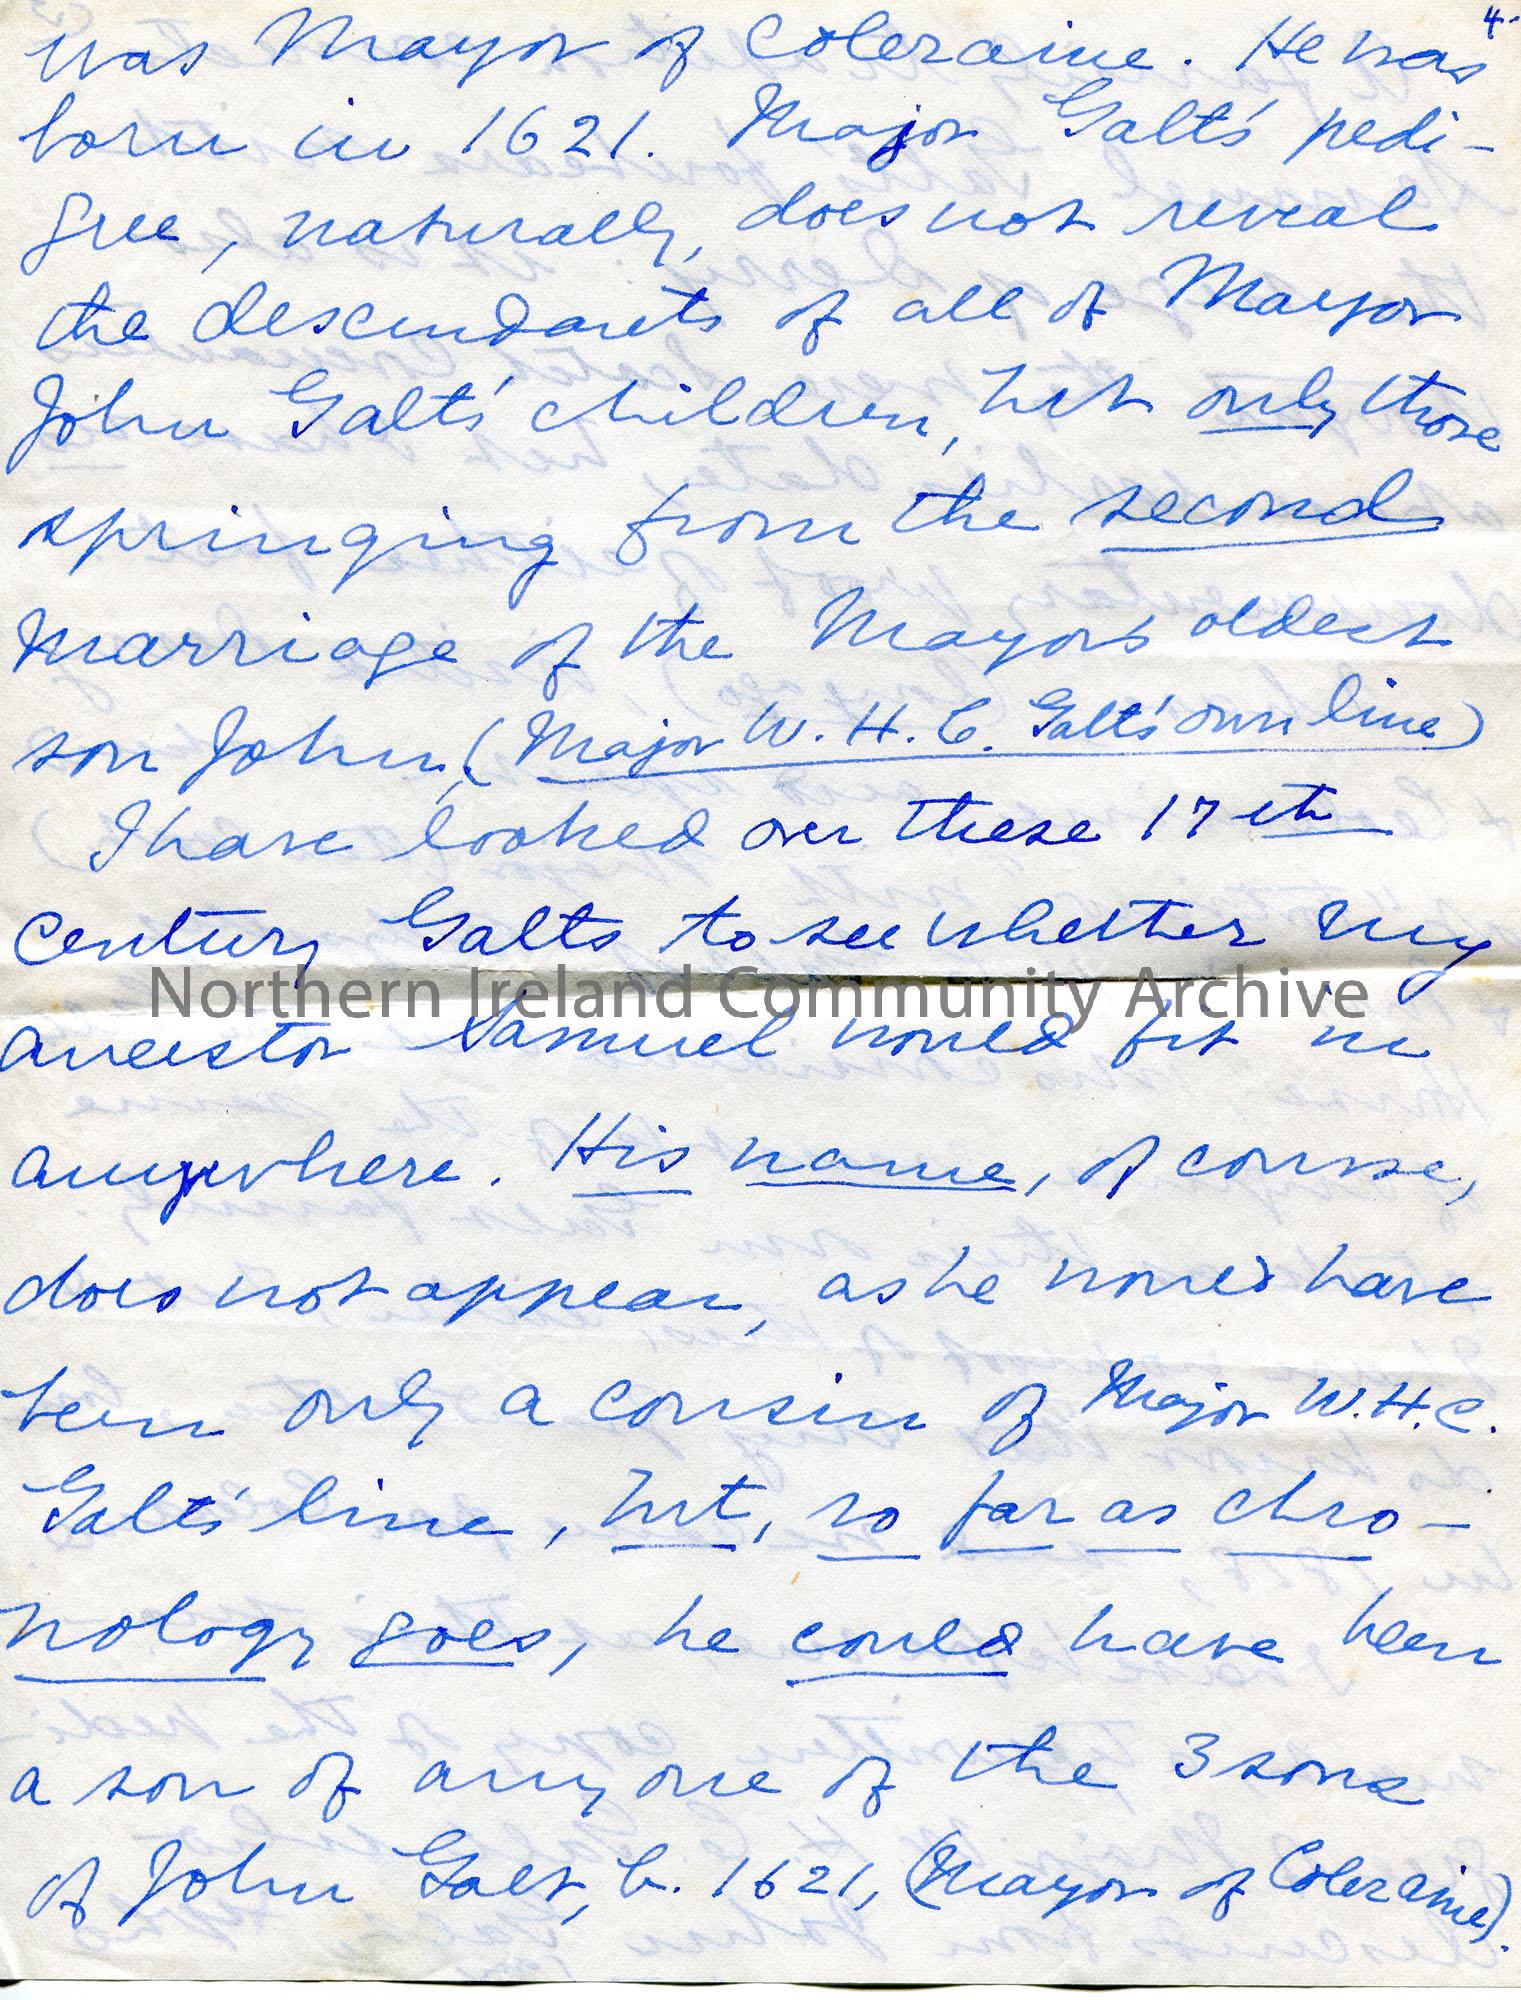 4.
was Mayor of Coleraine. He was
born in 1621. Major Galt's pedi-
gree, naturally, does not reveal
the descendants of all of Mayor
John Galt's children, but only those
springing from the second
marriage of the Mayor's oldest
son John, (Major W. H. C. Galt's own line)
I have looked over these 17th
century Galts to see whether my
Northern Ireland Community Archive
ancestor Samuel would fit in
anywhere. His name, of course,
does not appear, as he would have
been only a cousin of Major W.H.C.
Galt's line, but, so far as chro-
nology goes, he could have been
a son of any one of the 3 sons
of John Galt, b. 1621, (Mayor of Coleraine).